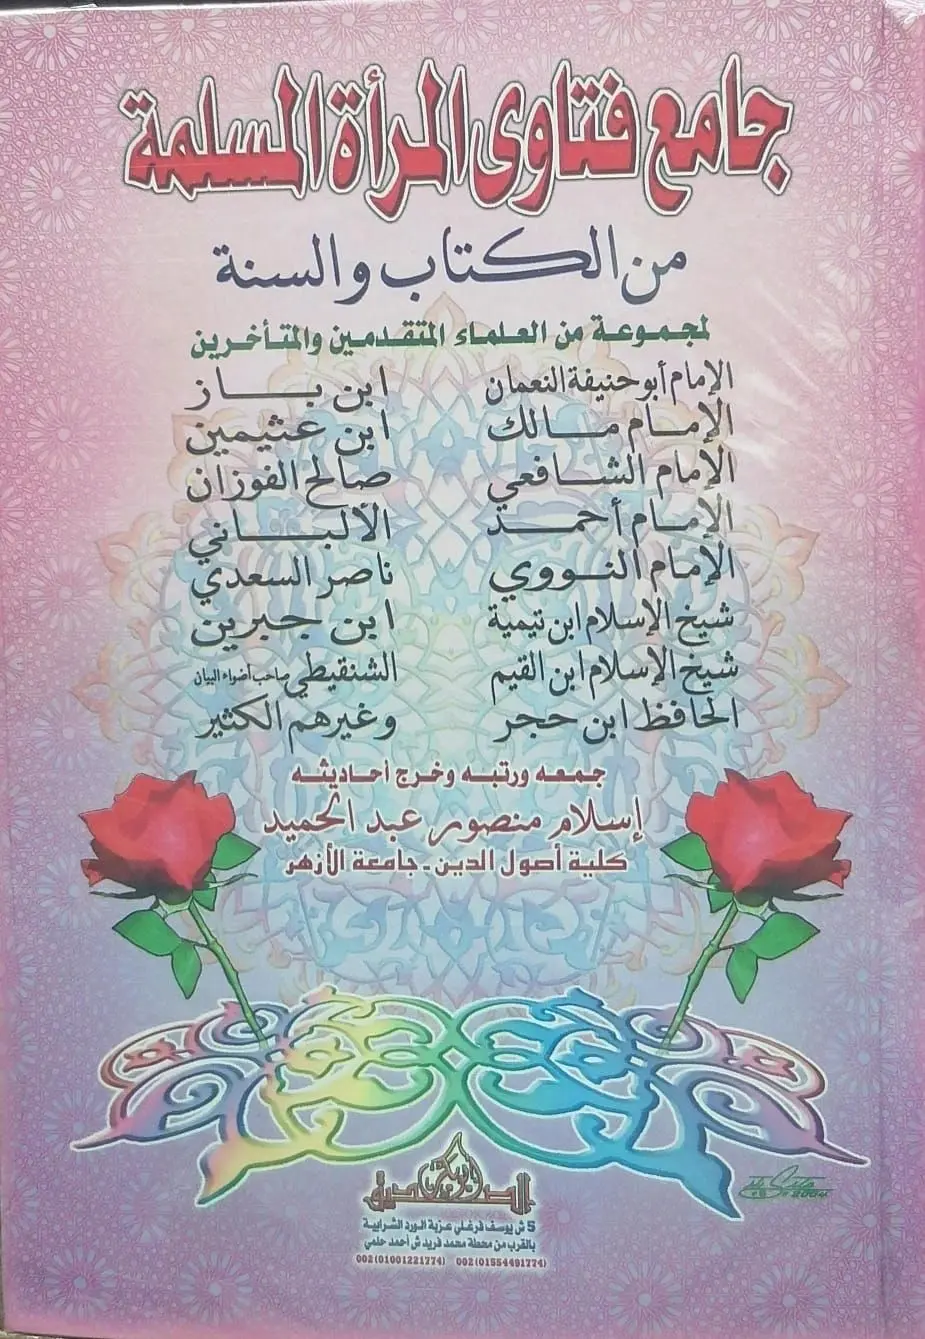 جامع فتاوى المرأة المسلمة
من الكتاب والسنة
لمجموعة من العلماء المتقدمين والمتأخرين
الإمام أبو حنيفة النعمان
الإمام مالك
الإمام الشافعي
الإمام أحمد
الإمام النووي
شيخ الإسلام ابن تيمية
شيخ الإسلام ابن القيم
الحافظ ابن حجر
ابن باز
ابن عثيمين
صالح الفوزان
الألباني
ناصر السعدي
ابن جبرين
الشنقيطي صاحب أضواء البيان
وغيرهم الكثير
جمعه ورتبه وخرج أحاديثه
إسلام منصور عبد الحميد
كلية أصول الدين - جامعة الأزهر
5 ش يوسف فرغلي عزبة الورد الشرابية
بالقرب من محطة محمد فريد ش أحمد حلمي
002 (01001221774) 002 (01554491774)